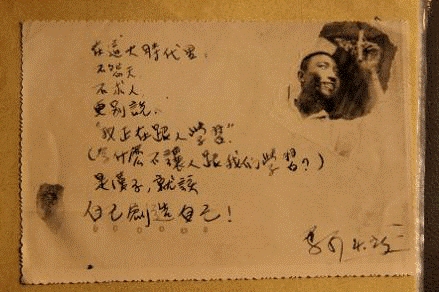 在這大時代里，
不怨天
不求人，
更别說，
“我正在跟人學習”，
（為什麽不讓人跟我們學習？）
是漢子，就該
自己創造自己！